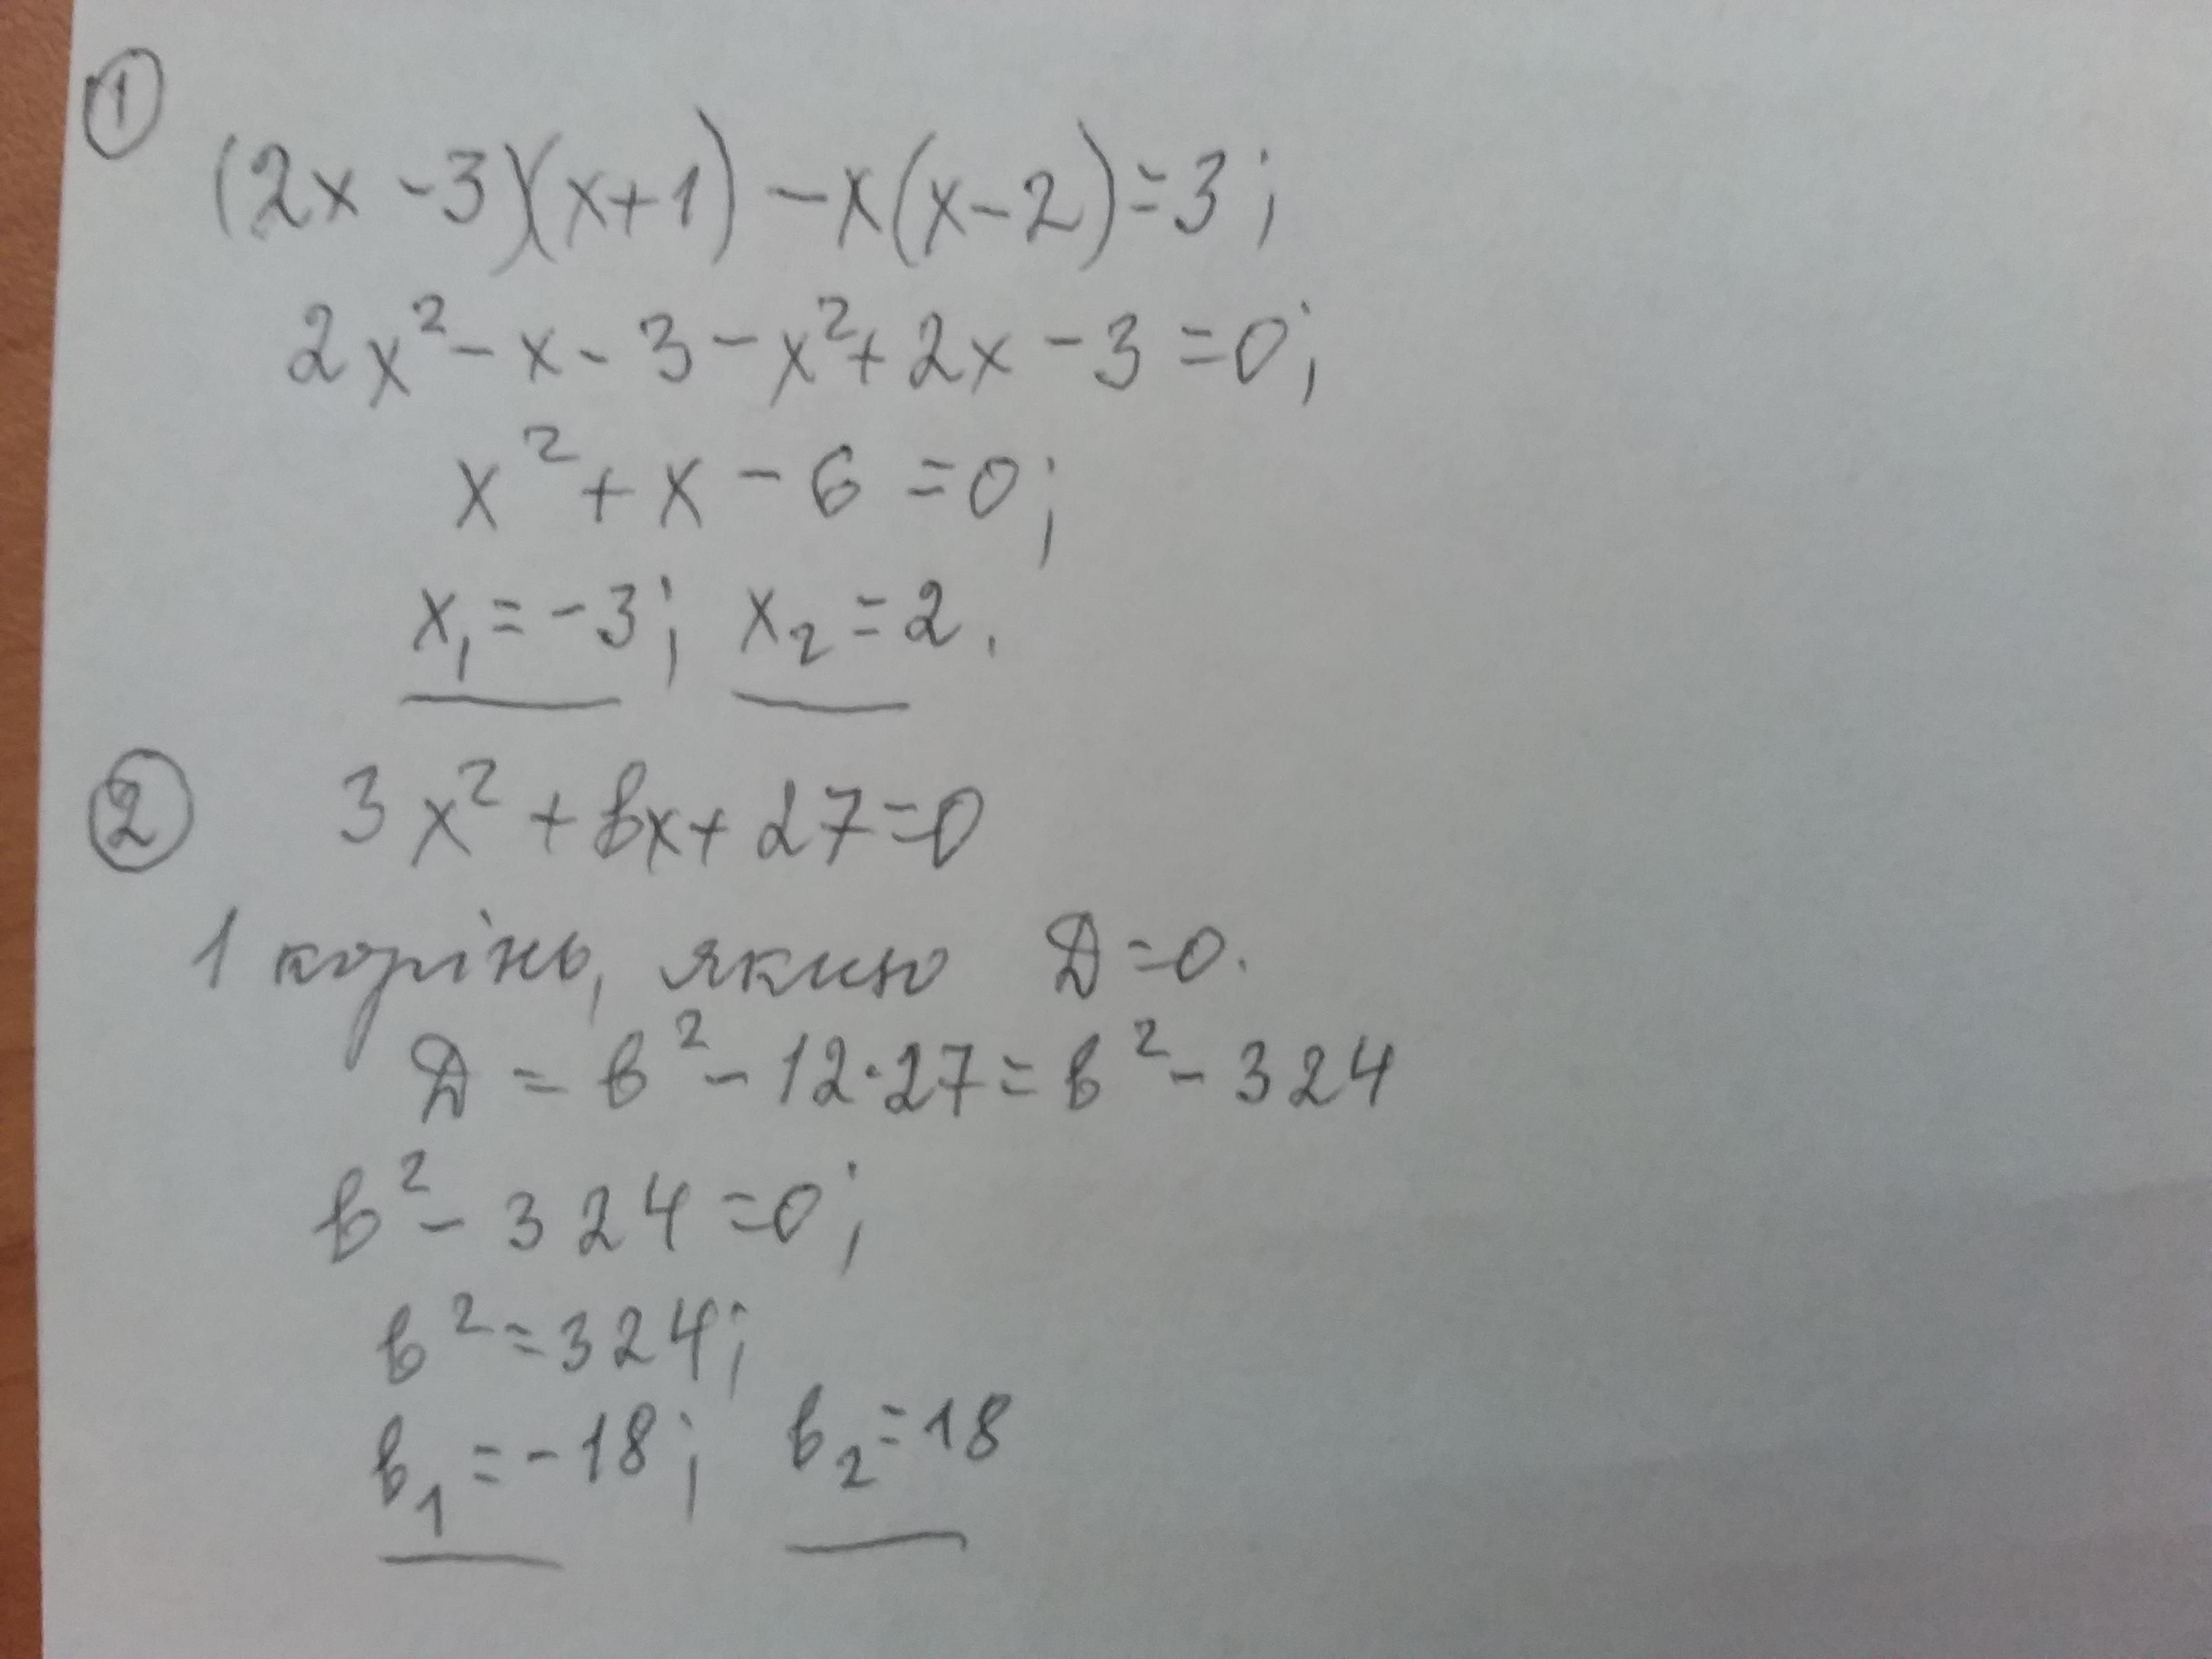 ①
(2x-3)(x+1)-x(x-2)=3;
2x²-x-3-x²+2x-3=0;
x²+x-6=0;
x₁=-3; x₂=2.
② 3x²+вx+27=0
1 корінь, якщо Д=0.
Д=в²-12·27=в²-324
в²-324=0;
в²=324;
в₁=-18; в₂=18